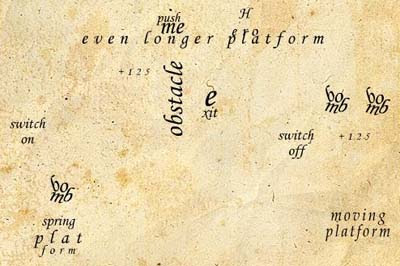 push
me
H
ero
even longer platform
+125
obstacle
e
xit
bo
mb
bo
mb
switch
on
switch
off
+125
bo
mb
spring
plat
form
moving
platform